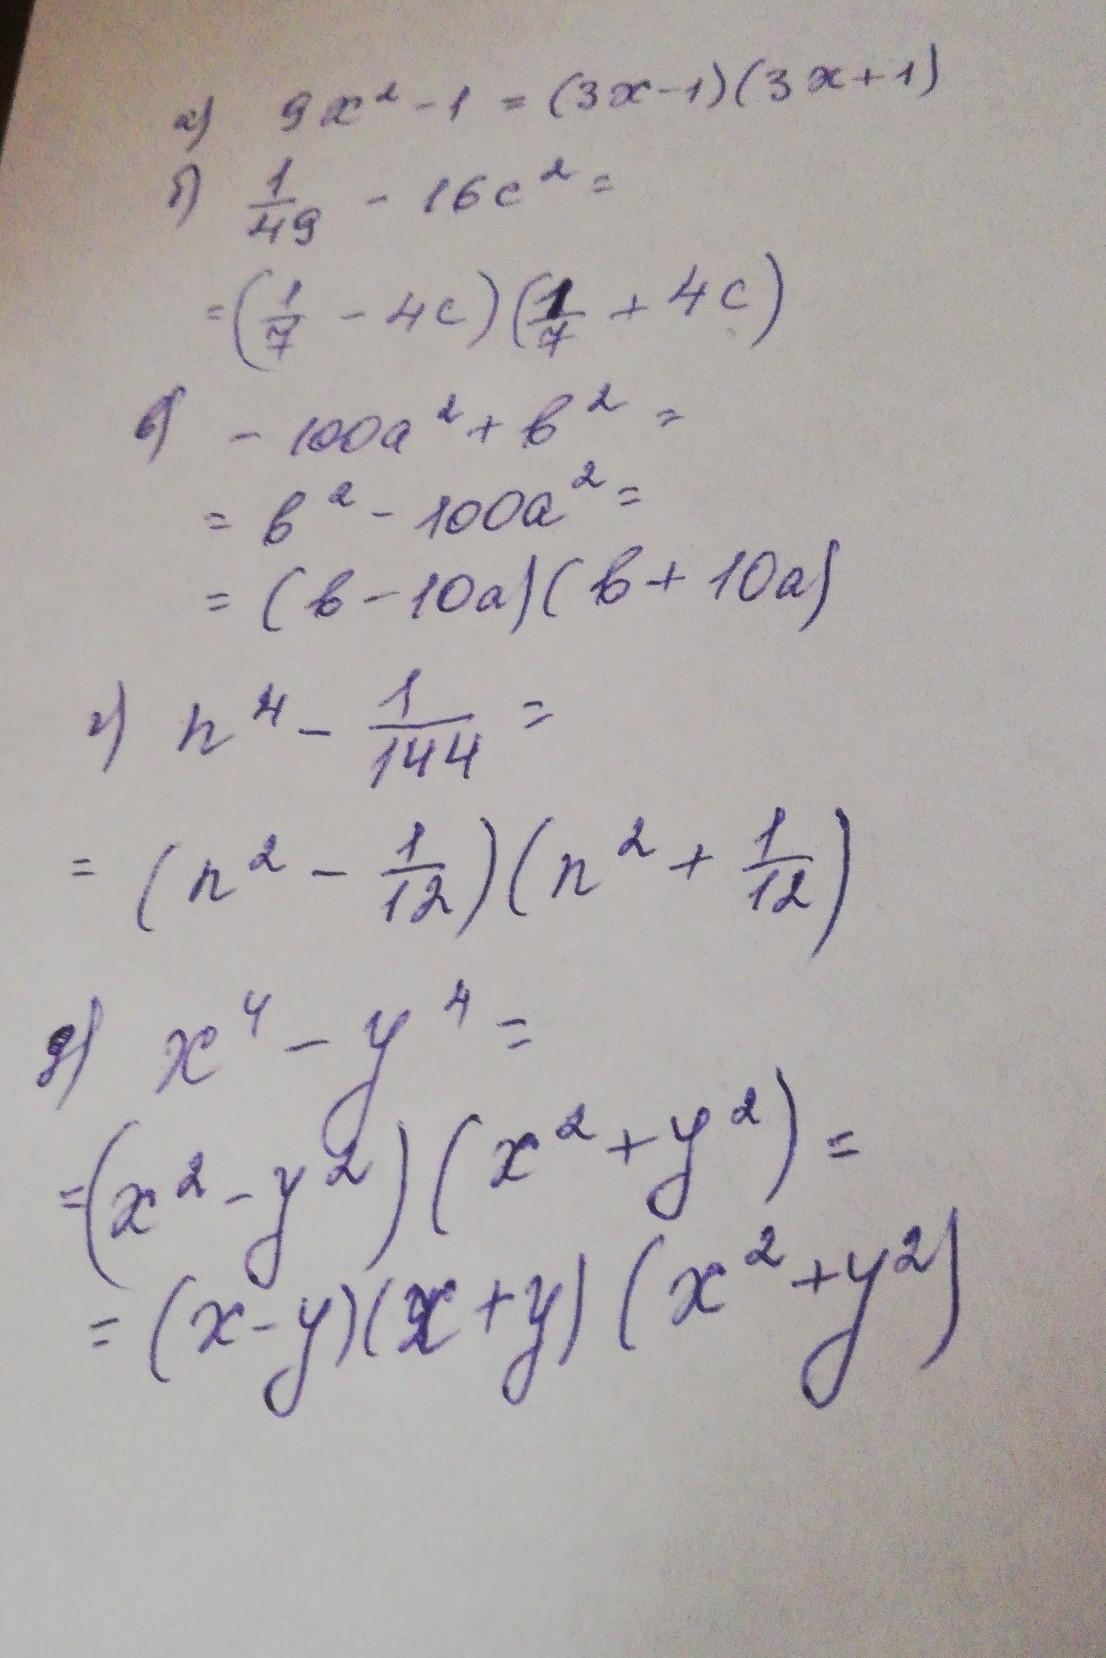 а) 9x² - 1 = (3x - 1)(3x + 1)
б) 1/49 - 16c² =
= (1/7 - 4c)(1/7 + 4c)
в) - 100a² + b² =
= b² - 100a² =
= (b - 10a)(b + 10a)
г) n⁴ - 1/144 =
= (n² - 1/12)(n² + 1/12)
д) x⁴ - y⁴ =
= (x² - y²)(x² + y²) =
= (x - y)(x + y)(x² + y²)